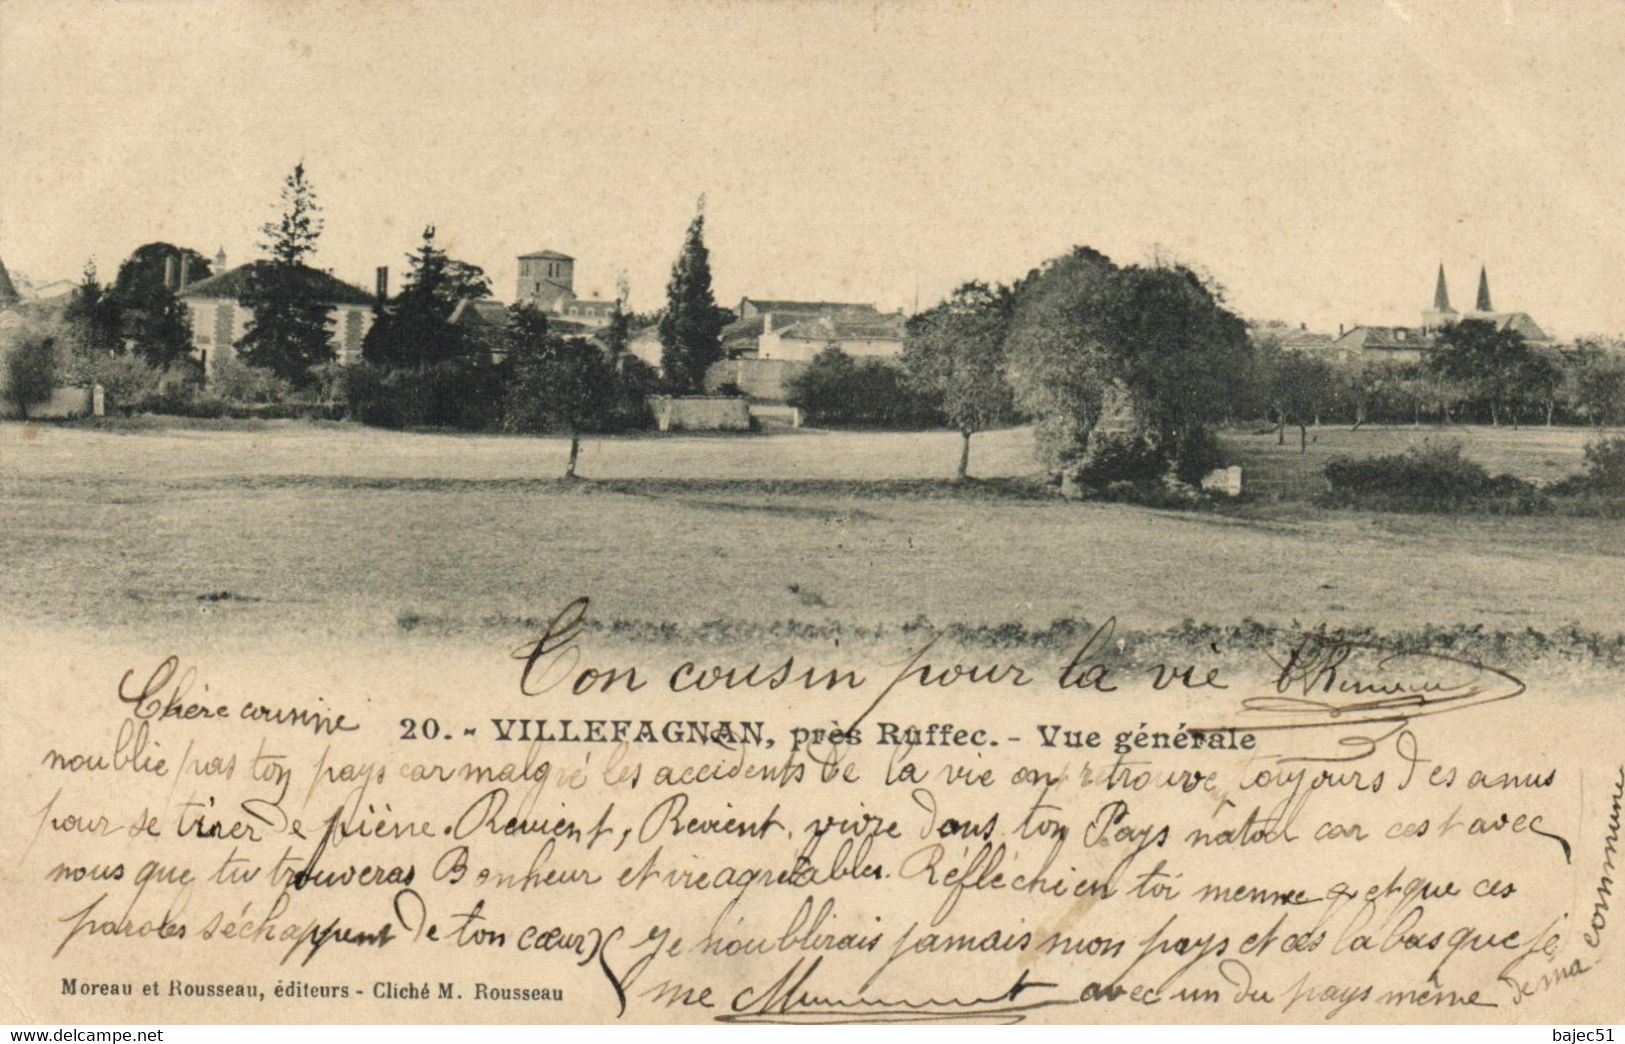 Ton cousin pour la vie
Chère cousine
20. - VILLEFAGNAN, près Ruffec. - Vue générale
noublie pas ton pays car malgré les accidents de la vie on retrouve toujours des amis
pour se tirer de piène. Revient, Revient, vivre dans ton Pays natal car cest avec
nous que tu trouveras Bonheur et vie agréables. Réfléchi en toi menne et que ces
paroles séchappent de ton cœur (Je noublirais jamais mon pays et cés la bas que je
me avec un du pays même de ma commune
Moreau et Rousseau, éditeurs - Cliché M. Rousseau
bajec51